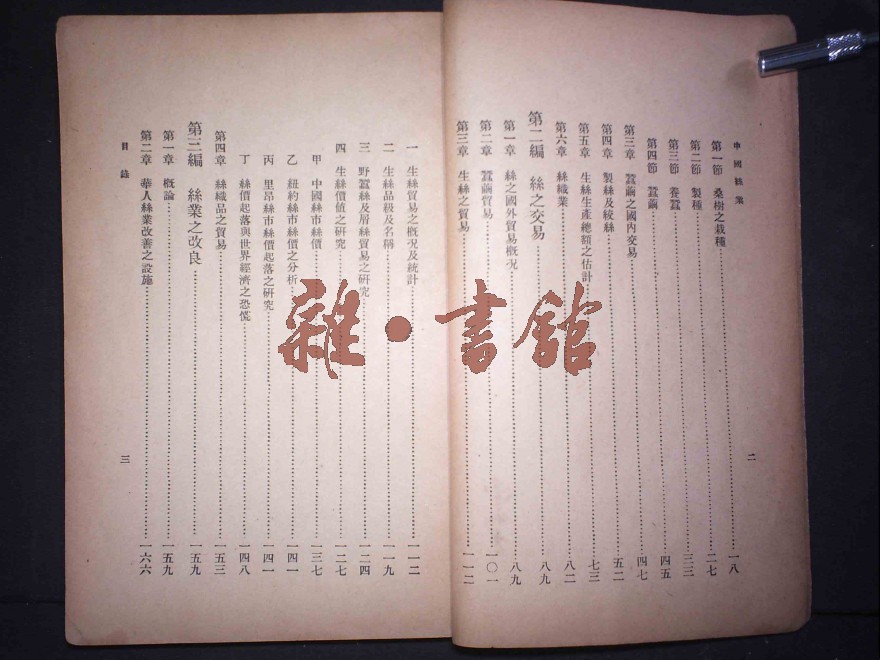 中國絲業
第一節 桑樹之栽種 一八
第二節 製種 二七
第三節 養蠶 三三
第四節 蠶繭 四五
第三章 蠶繭之國內交易 四七
第四章 製絲及絞絲 五二
第五章 生絲生產總額之估計 七三
第六章 絲織業 八二
第二編 絲之交易 八九
第一章 絲之國外貿易概況 八九
第二章 蠶繭貿易 一〇一
第三章 生絲之貿易 一一二
二
一 生絲貿易之概況及統計 一一二
二 生絲品級及名稱 一一九
三 野蠶絲及屑絲貿易之研究 一二四
四 生絲價值之研究 一二七
甲 中國絲市絲價 一三七
乙 紐約絲市絲價之分析 一四一
丙 里昂絲市絲價起落之研究 一四一
丁 絲價起落與世界經濟之恐慌 一四八
第四章 絲織品之貿易 一五三
第三編 絲業之改良 一五九
第一章 概論 一五九
第二章 華人絲業改善之設施 一六六
目錄
三
雜·書館